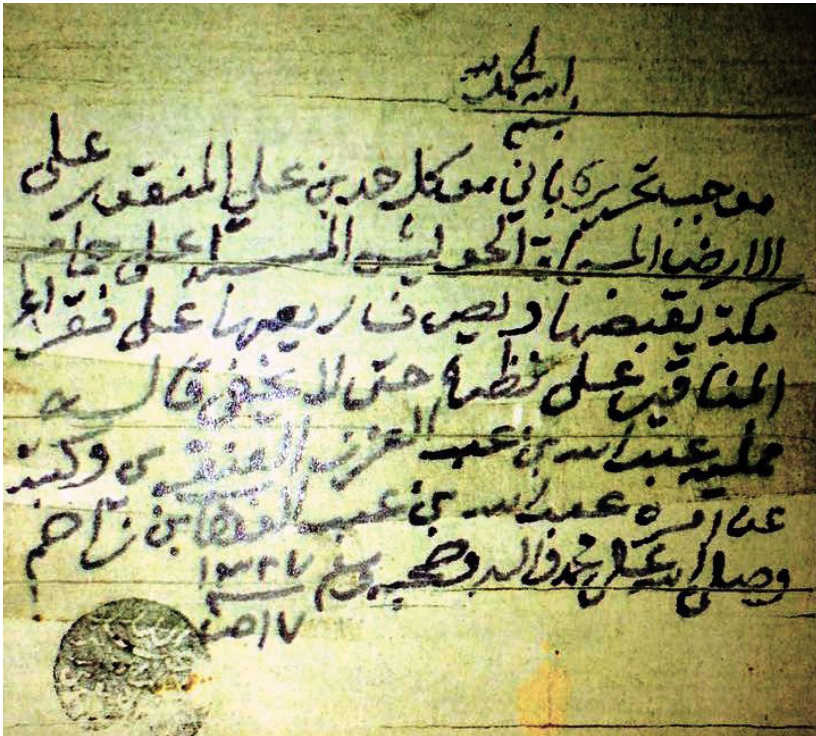 الحمد لله
بسم الله
موجب تحريره باني موكل حمد بن علي المنقور على
الارض المسماية الحويش المسبلة على جامع
مكة يقبضها ويصرف ريعها على فقراء
المناقير على حتى لا يخفى قاله
ممليه عبدالله بن عبد العزيز العنقري وكتبه
عن امره عبدالله بن عبد الوهاب بن زاحم
وصلى الله على محمد واله وصحبه وسلم ١٣٤٧
١٧